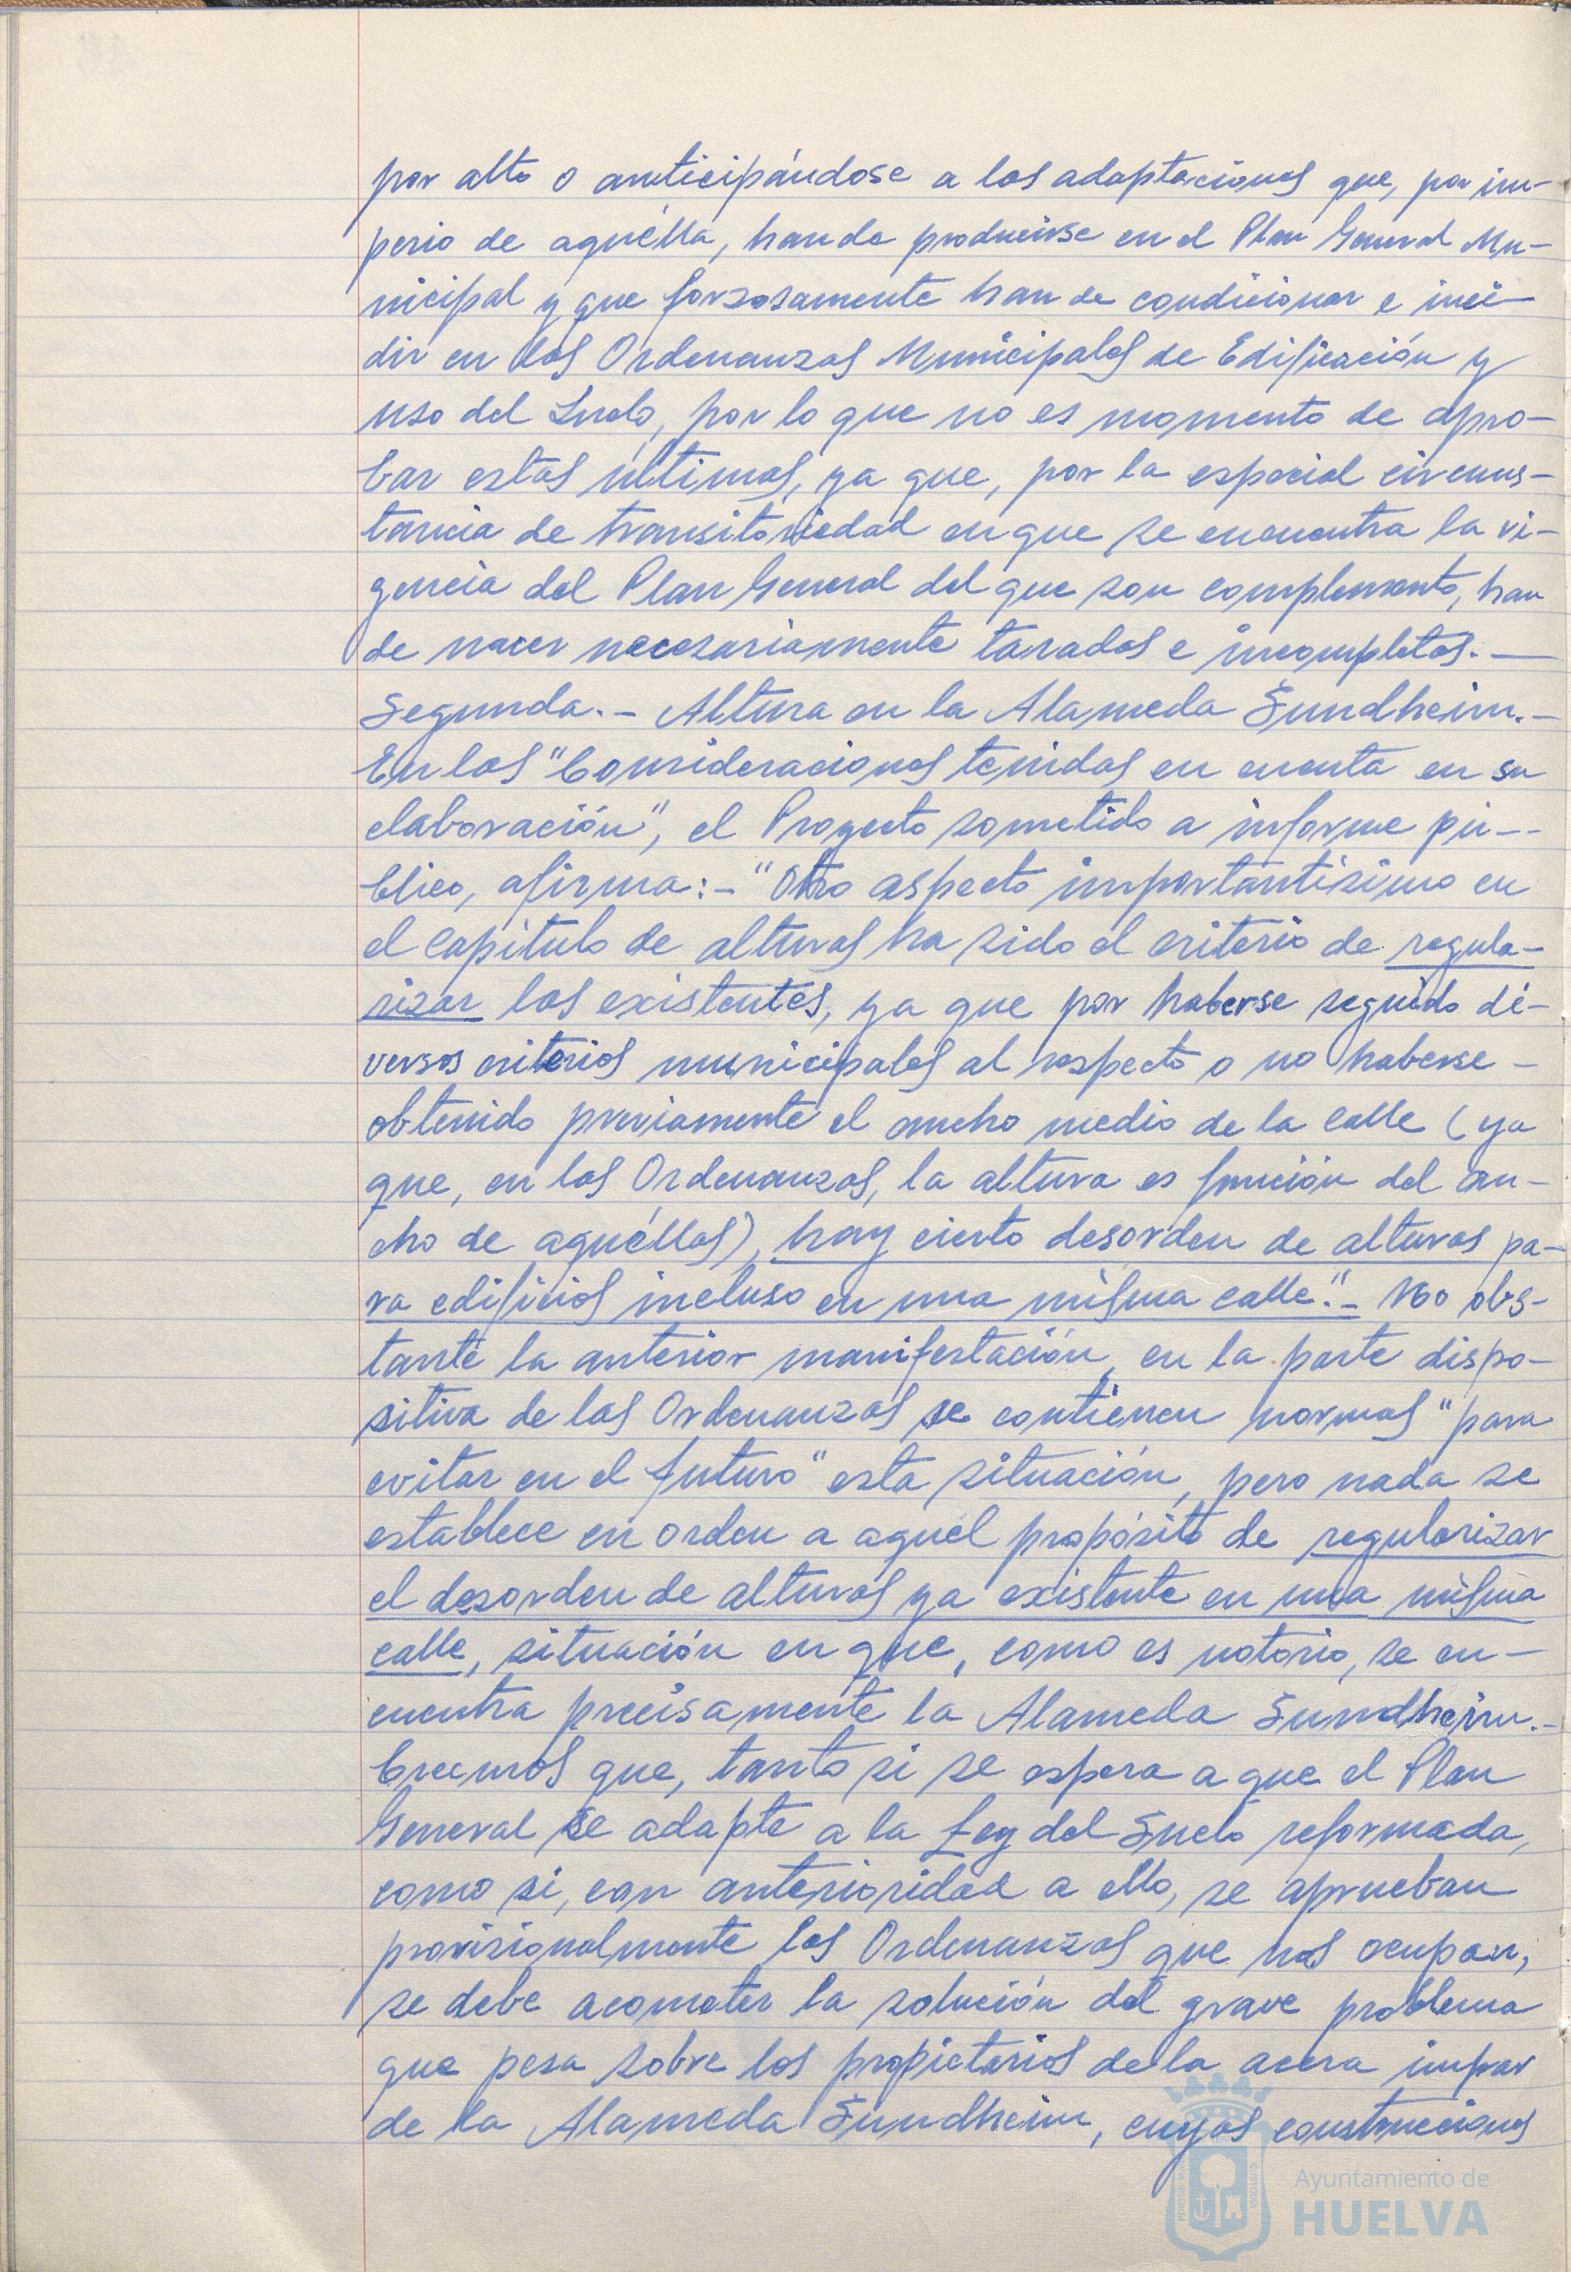 por alto o anticipándose a las adaptaciones que, por im-
perio de aquélla, han de producirse en el Plan General Mu-
nicipal y que forzosamente han de condicionar e inci-
dir en las Ordenanzas Municipales de Edificación y
uso del Suelo, por lo que no es momento de apro-
bar estas últimas, ya que, por la especial circuns-
tancia de transitoriedad en que se encuentra la vi-
gencia del Plan General del que son complemento, han
de nacer necesariamente taradas e incompletas.-
Segunda.- Altura en la Alameda Sundheim.-
En las "Consideraciones tenidas en cuenta en su
elaboración", el Proyecto sometido a informe pú-
blico, afirma:- "Otro aspecto importantísimo en
el capítulo de alturas ha sido el criterio de regula-
rizar las existentes, ya que por haberse seguido di-
versos criterios municipales al respecto o no haberse-
obtenido previamente el ancho medio de la calle (ya
que, en las Ordenanzas, la altura es función del an-
cho de aquéllas), hay cierto desorden de alturas pa-
ra edificios incluso en una misma calle".- No obs-
tante la anterior manifestación, en la parte dispo-
sitiva de las Ordenanzas se contienen normas "para
evitar en el futuro" esta situación, pero nada se
establece en orden a aquel propósito de regularizar
el desorden de alturas ya existente en una misma
calle, situación en que, como es notorio, se en-
cuentra precisamente la Alameda Sundheim.-
Creemos que, tanto si se espera a que el Plan
General se adapte a la Ley del Suelo reformada,
como si, con anterioridad a ello, se aprueban
provisionalmente las Ordenanzas que nos ocupan,
se debe acometer la solución del grave problema
que pesa sobre los propietarios de la acera impar
de la Alameda Sundheim, cuyas construcciones
Ayuntamiento de
HUELVA